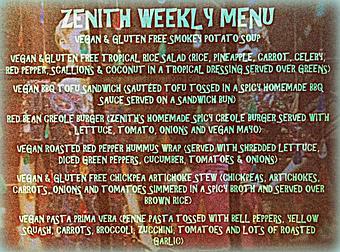 ZENITH WEEKLY MENU
VEGAN & GLUTEN FREE SMOKEY POTATO SOUP
VEGAN & GLUTEN FREE TROPICAL RICE SALAD (RICE, PINEAPPLE, CARROT, CELERY,
RED PEPPER, SCALLIONS & COCONUT IN A TROPICAL DRESSING SERVED OVER GREENS)
VEGAN BBQ TOFU SANDWICH (SAUTÉED TOFU TOSSED IN A SPICY HOMEMADE BBQ
SAUCE SERVED ON A SANDWICH BUN)
RED BEAN CREOLE BURGER (ZENITH'S HOMEMADE SPICY CREOLE BURGER SERVED WITH
LETTUCE, TOMATO, ONIONS AND VEGAN MAYO)
VEGAN ROASTED RED PEPPER HUMMUS WRAP (SERVED WITH SHREDDED LETTUCE,
DICED GREEN PEPPERS, CUCUMBER, TOMATOES & ONIONS)
VEGAN & GLUTEN FREE CHICKPEA ARTICHOKE STEW (CHICKPEAS, ARTICHOKES,
CARROTS, ONIONS AND TOMATOES SIMMERED IN A SPICY BROTH AND SERVED OVER
BROWN RICE)
VEGAN PASTA PRIMA VERA (PENNE PASTA TOSSED WITH BELL PEPPERS, YELLOW
SQUASH, CARROTS, BROCCOLI, ZUCCHINI, TOMATOES AND LOTS OF ROASTED
GARLIC)